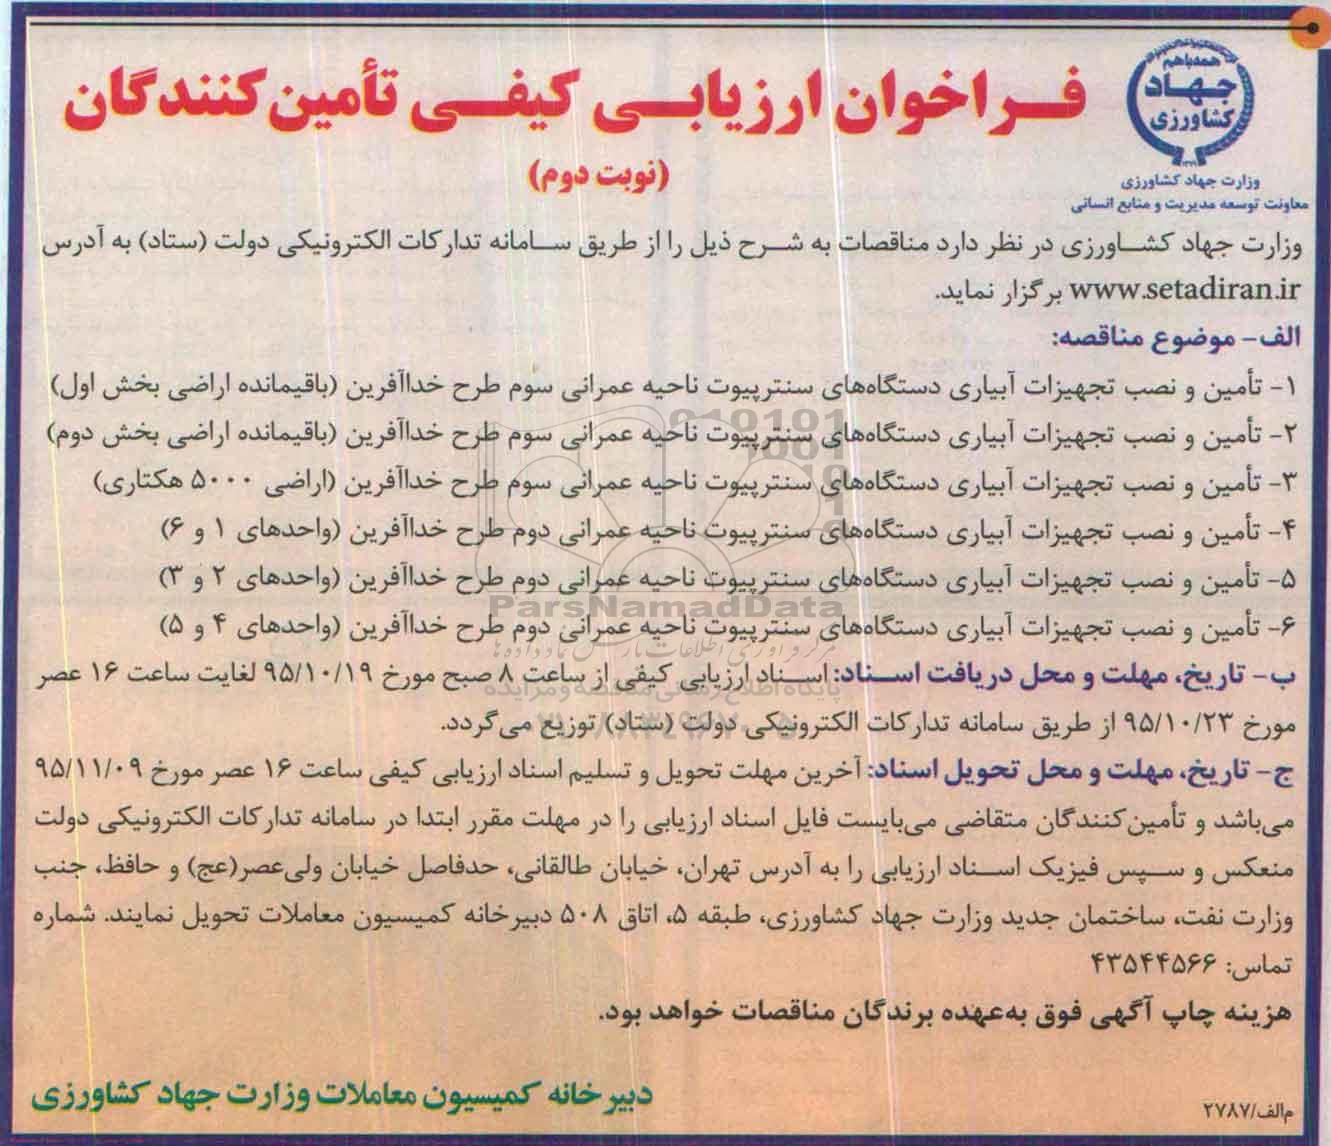 همه باهم
جهاد
کشاورزی
۱۳۷۹
وزارت جهاد کشاورزی
معاونت توسعه مدیریت و منابع انسانی
فراخوان ارزیابی کیفی تأمین‌کنندگان
(نوبت دوم)
وزارت جهاد کشاورزی در نظر دارد مناقصات به شرح ذیل را از طریق سامانه تدارکات الکترونیکی دولت (ستاد) به آدرس
www.setadiran.ir برگزار نماید.
الف- موضوع مناقصه:
۱- تأمین و نصب تجهیزات آبیاری دستگاه‌های سنترپیوت ناحیه عمرانی سوم طرح خداآفرین (باقیمانده اراضی بخش اول)
۲- تأمین و نصب تجهیزات آبیاری دستگاه‌های سنترپیوت ناحیه عمرانی سوم طرح خداآفرین (باقیمانده اراضی بخش دوم)
۳- تأمین و نصب تجهیزات آبیاری دستگاه‌های سنترپیوت ناحیه عمرانی سوم طرح خداآفرین (اراضی ۵۰۰۰ هکتاری)
۴- تأمین و نصب تجهیزات آبیاری دستگاه‌های سنترپیوت ناحیه عمرانی دوم طرح خداآفرین (واحدهای ۱ و ۶)
۵- تأمین و نصب تجهیزات آبیاری دستگاه‌های سنترپیوت ناحیه عمرانی دوم طرح خداآفرین (واحدهای ۲ و ۳)
ParsNamadData
۶- تأمین و نصب تجهیزات آبیاری دستگاه‌های سنترپیوت ناحیه عمرانی دوم طرح خداآفرین (واحدهای ۴ و ۵)
ب- تاریخ، مهلت و محل دریافت اسناد: اسناد ارزیابی کیفی از ساعت ۸ صبح مورخ ۹۵/۱۰/۱۹ لغایت ساعت ۱۶ عصر
مورخ ۹۵/۱۰/۲۳ از طریق سامانه تدارکات الکترونیکی دولت (ستاد) توزیع می‌گردد.
ج- تاریخ، مهلت و محل تحویل اسناد: آخرین مهلت تحویل و تسلیم اسناد ارزیابی کیفی ساعت ۱۶ عصر مورخ ۹۵/۱۱/۰۹
می‌باشد و تأمین‌کنندگان متقاضی می‌بایست فایل اسناد ارزیابی را در مهلت مقرر ابتدا در سامانه تدارکات الکترونیکی دولت
منعکس و سپس فیزیک اسناد ارزیابی را به آدرس تهران، خیابان طالقانی، حدفاصل خیابان ولی‌عصر(عج) و حافظ، جنب
وزارت نفت، ساختمان جدید وزارت جهاد کشاورزی، طبقه ۵، اتاق ۵۰۸ دبیرخانه کمیسیون معاملات تحویل نمایند. شماره
تماس: ۴۳۵۴۴۵۶۶
هزینه چاپ آگهی فوق به‌عهده برندگان مناقصات خواهد بود.
دبیرخانه کمیسیون معاملات وزارت جهاد کشاورزی
م‌الف/۲۷۸۷